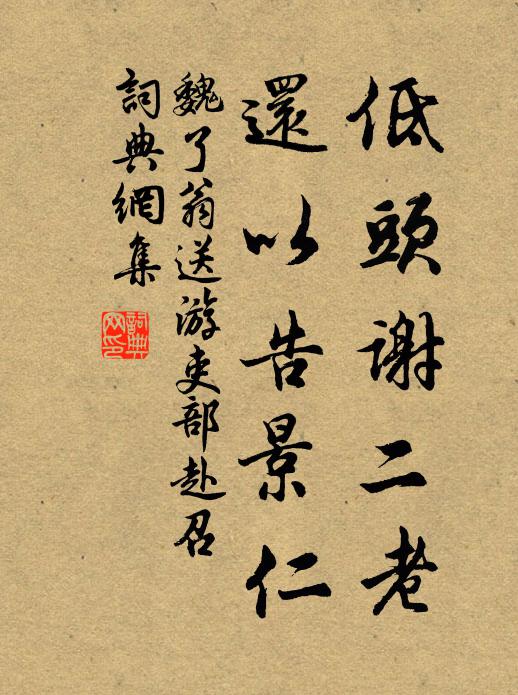 低頭謝二老
還以告景仁
魏了翁送游吏部赴召
詞典網集
詞典
网印